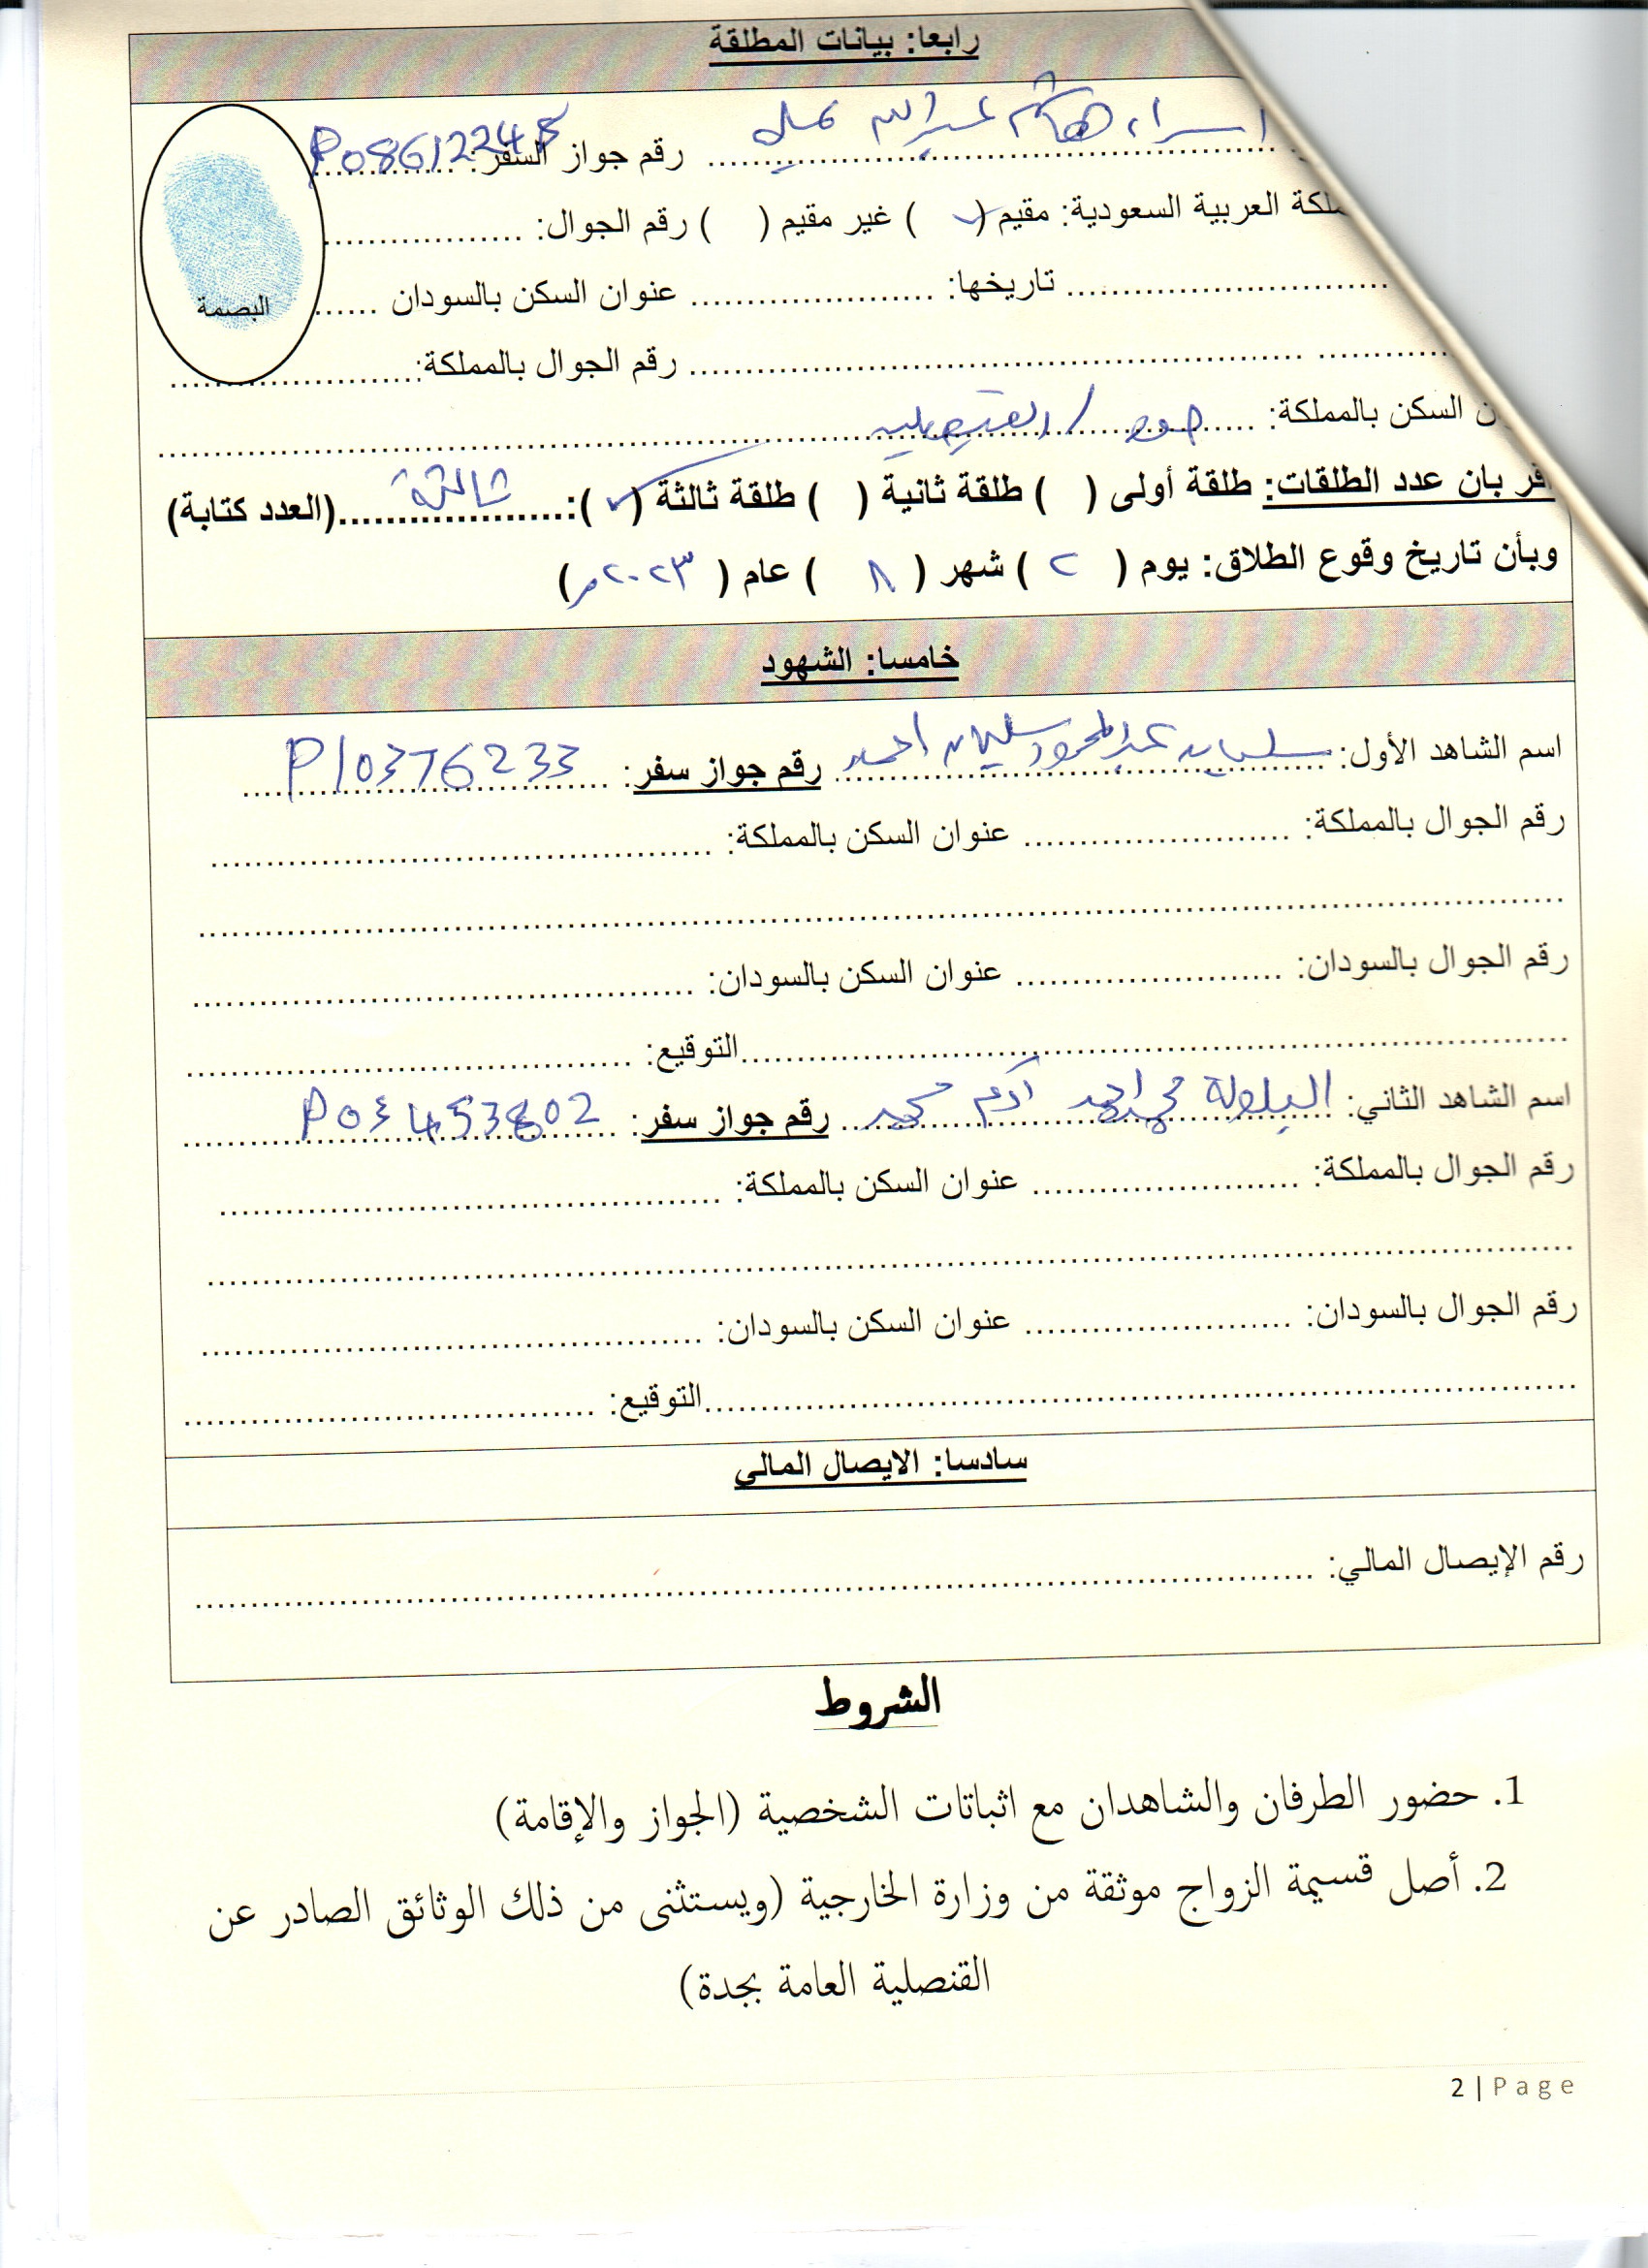 رابعا: بيانات المطلقة
اسراء هاشم عبدالله ........ رقم جواز السفر: P0861224
ملكة العربية السعودية: مقيم (✓) غير مقيم ( ) رقم الجوال: ..................
........................................ تاريخها: ...................... عنوان السكن بالسودان ......
البصمة
........................................ رقم الجوال بالمملكة: ......................
ن السكن بالمملكة: ........ / ........
قر بان عدد الطلقات: طلقة أولى ( ) طلقة ثانية ( ) طلقة ثالثة (✓): ثالثة (العدد كتابة)
وبأن تاريخ وقوع الطلاق: يوم ( ٢ ) شهر ( ٨ ) عام ( ٢٠٢٣م)
خامسا: الشهود
اسم الشاهد الأول: سليمان عبدالمحمود سليمان احمد رقم جواز سفر: P10376233
رقم الجوال بالمملكة: ........................ عنوان السكن بالمملكة: ........................................
رقم الجوال بالسودان: ........................ عنوان السكن بالسودان: ........................................
........................................التوقيع: ........................................
اسم الشاهد الثاني: البلولة محمد احمد ادم محمد رقم جواز سفر: P03453802
رقم الجوال بالمملكة: ........................ عنوان السكن بالمملكة: ........................................
رقم الجوال بالسودان: ........................ عنوان السكن بالسودان: ........................................
........................................التوقيع: ........................................
سادسا: الايصال المالي
رقم الإيصال المالي: ........................................
الشروط
1. حضور الطرفان والشاهدان مع اثباتات الشخصية (الجواز والإقامة)
2. أصل قسيمة الزواج موثقة من وزارة الخارجية (ويستثنى من ذلك الوثائق الصادر عن
القنصلية العامة بجدة)
2 | Page